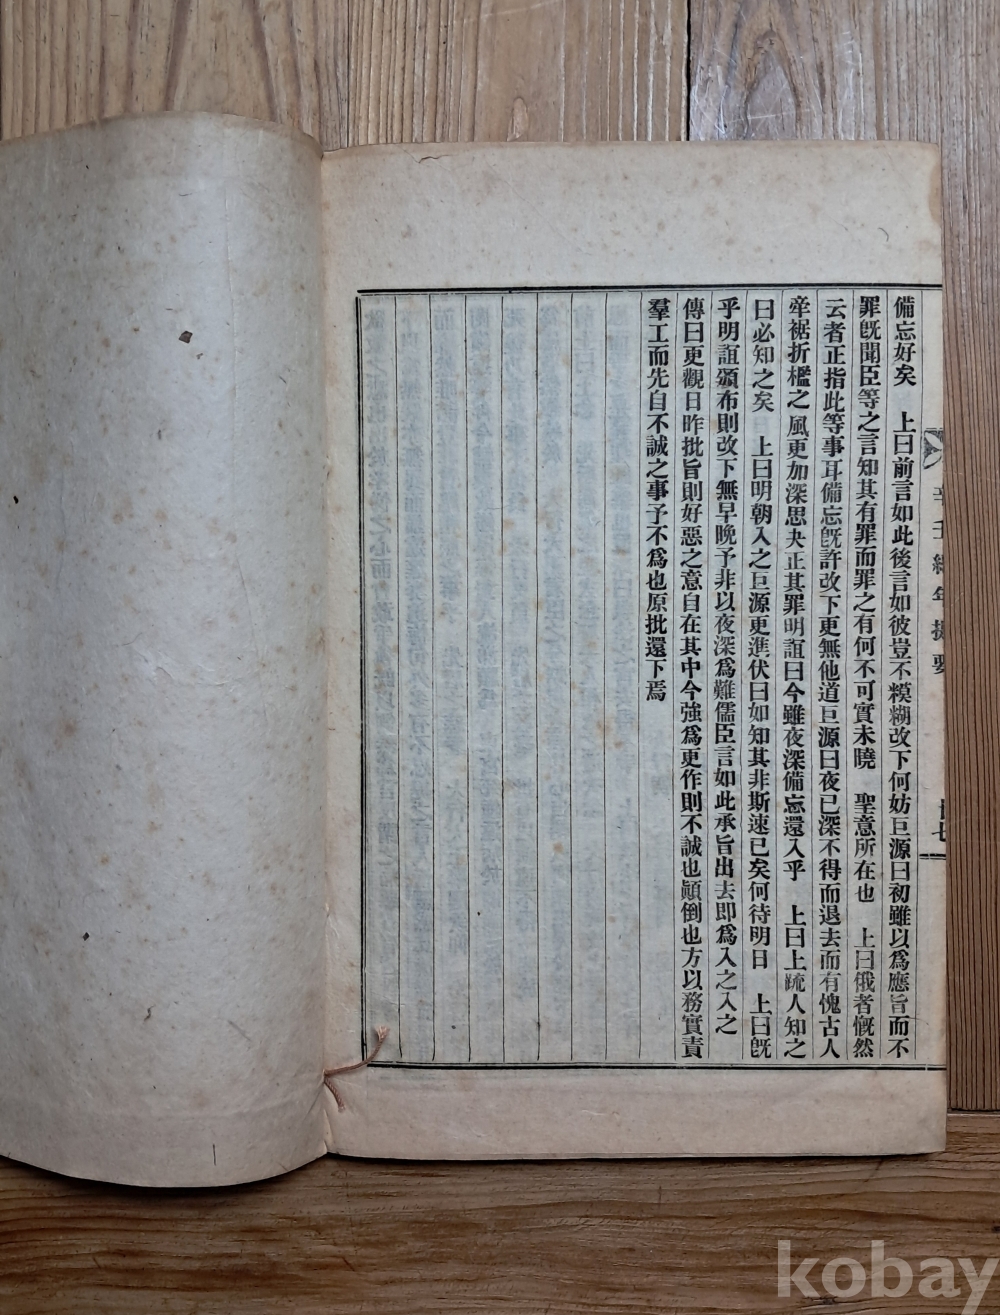 備忘好矣　上曰前言如此後言如彼豈不糢糊改下何妨巨源曰初雖以爲應旨而不
罪旣聞臣等之言知其有罪而罪之有何不可實未曉　聖意所在也　上曰俄者慨然
云者正指此等事耳備忘旣許改下更無他道巨源曰夜已深不得而退去而有愧古人
牽裾折檻之風更加深思夬正其罪明誼曰今雖夜深備忘還入乎　上曰上疏人知之
曰必知之矣　上曰明朝入之巨源更進伏曰如知其非斯速已矣何待明日　上曰旣
乎明誼頒布則改下無早晩予非以夜深爲難儒臣言如此承旨出去即爲入之入之
傳曰更觀日昨批旨則好惡之意自在其中今強爲更作則不誠也顚倒也方以務實責
羣工而先自不誠之事予不爲也原批還下焉
辛壬編年提要
kobay